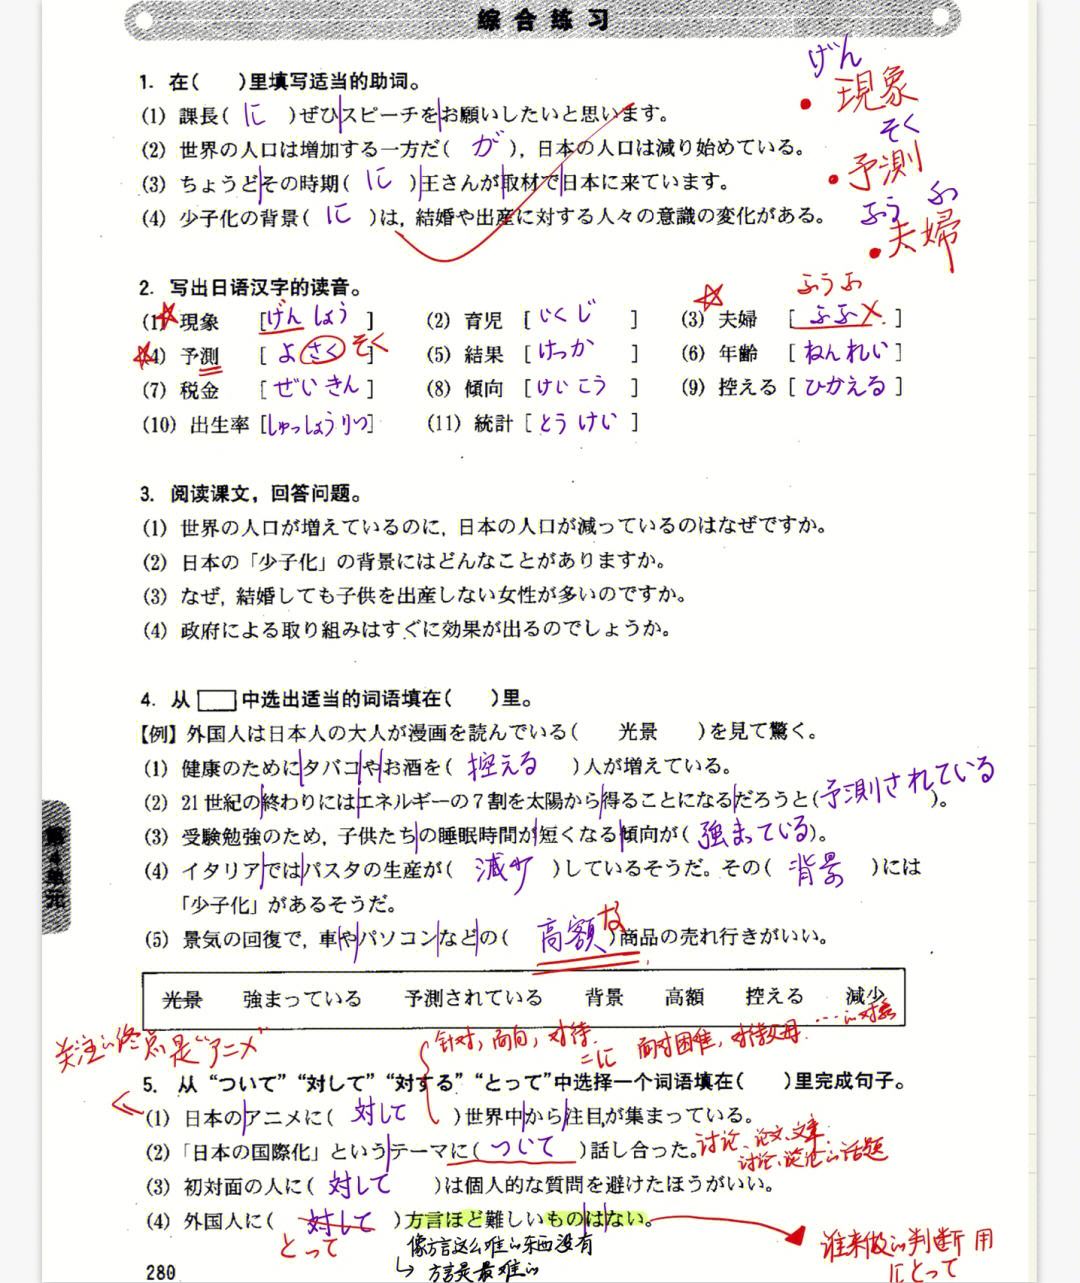 综合练习
1. 在( )里填写适当的助词。
(1) 課長( に )ぜひスピーチをお願いしたいと思います。
(2) 世界の人口は増加する一方だ( が ), 日本の人口は減り始めている。
(3) ちょうどその時期( に )王さんが取材で日本に来ています。
(4) 少子化の背景( に )は, 結婚や出産に対する人々の意識の変化がある。
げん
• 現象
そく
• 予測
ふう ふ
• 夫婦
2. 写出日语汉字的读音。
ふうふ
(1) 現象 [げんしょう] (2) 育児 [いくじ] (3) 夫婦 [ふふ×]
(4) 予測 [よさく] そく (5) 結果 [けっか] (6) 年齢 [ねんれい]
(7) 税金 [ぜいきん] (8) 傾向 [けいこう] (9) 控える [ひかえる]
(10) 出生率 [しゅっしょうりつ] (11) 統計 [とうけい]
3. 阅读课文，回答问题。
(1) 世界の人口が増えているのに, 日本の人口が減っているのはなぜですか。
(2) 日本の「少子化」の背景にはどんなことがありますか。
(3) なぜ, 結婚しても子供を出産しない女性が多いのですか。
(4) 政府による取り組みはすぐに効果が出るのでしょうか。
4. 从 中选出适当的词语填在( )里。
【例】外国人は日本人の大人が漫画を読んでいる( 光景 )を見て驚く。
(1) 健康のためにタバコやお酒を( 控える )人が増えている。
(2) 21世紀の終わりにはエネルギーの7割を太陽から得ることになるだろうと(予測されている)。
(3) 受験勉強のため, 子供たちの睡眠時間が短くなる傾向が(強まっている)。
(4) イタリアではパスタの生産が( 減少 )しているそうだ。その( 背景 )には
「少子化」があるそうだ。
(5) 景気の回復で, 車やパソコンなどの( 高額な )商品の売れ行きがいい。
光景 強まっている 予測されている 背景 高額 控える 減少
关注的终点是“アニメ”
针对, 面向, 对待 面对困难, 对待父母 ……的对象
=に
5. 从“ついて”“対して”“対する”“とって”中选择一个词语填在( )里完成句子。
(1) 日本のアニメに( 対して )世界中から注目が集まっている。
(2)「日本の国際化」というテーマに( ついて )話し合った。讨论、论文、文章
讨论、谈论的话题
(3) 初対面の人に( 対して )は個人的な質問を避けたほうがいい。
(4) 外国人に( 対して )方言ほど難しいものはない。
とって
像方言这么难的东西没有
方言是最难的
谁来做的判断 用
にとって
280
第4单元